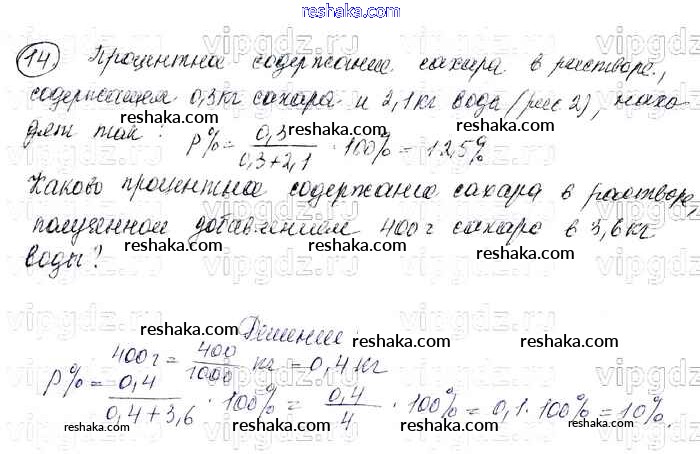 14) Процентное содержание сахара в растворе,
содержащем 0,3 кг сахара и 2,1 кг воды (рис 2), нахо-
дят так: p% = 0,3 / (0,3+2,1) · 100% = 12,5%
Каково процентное содержание сахара в растворе,
полученном добавлением 400 г сахара в 3,6 кг
воды?
Решение:
400 г = 400/1000 кг = 0,4 кг
p% = 0,4 / (0,4+3,6) · 100% = 0,4/4 · 100% = 0,1 · 100% = 10%.
reshaka.com
vipgdz